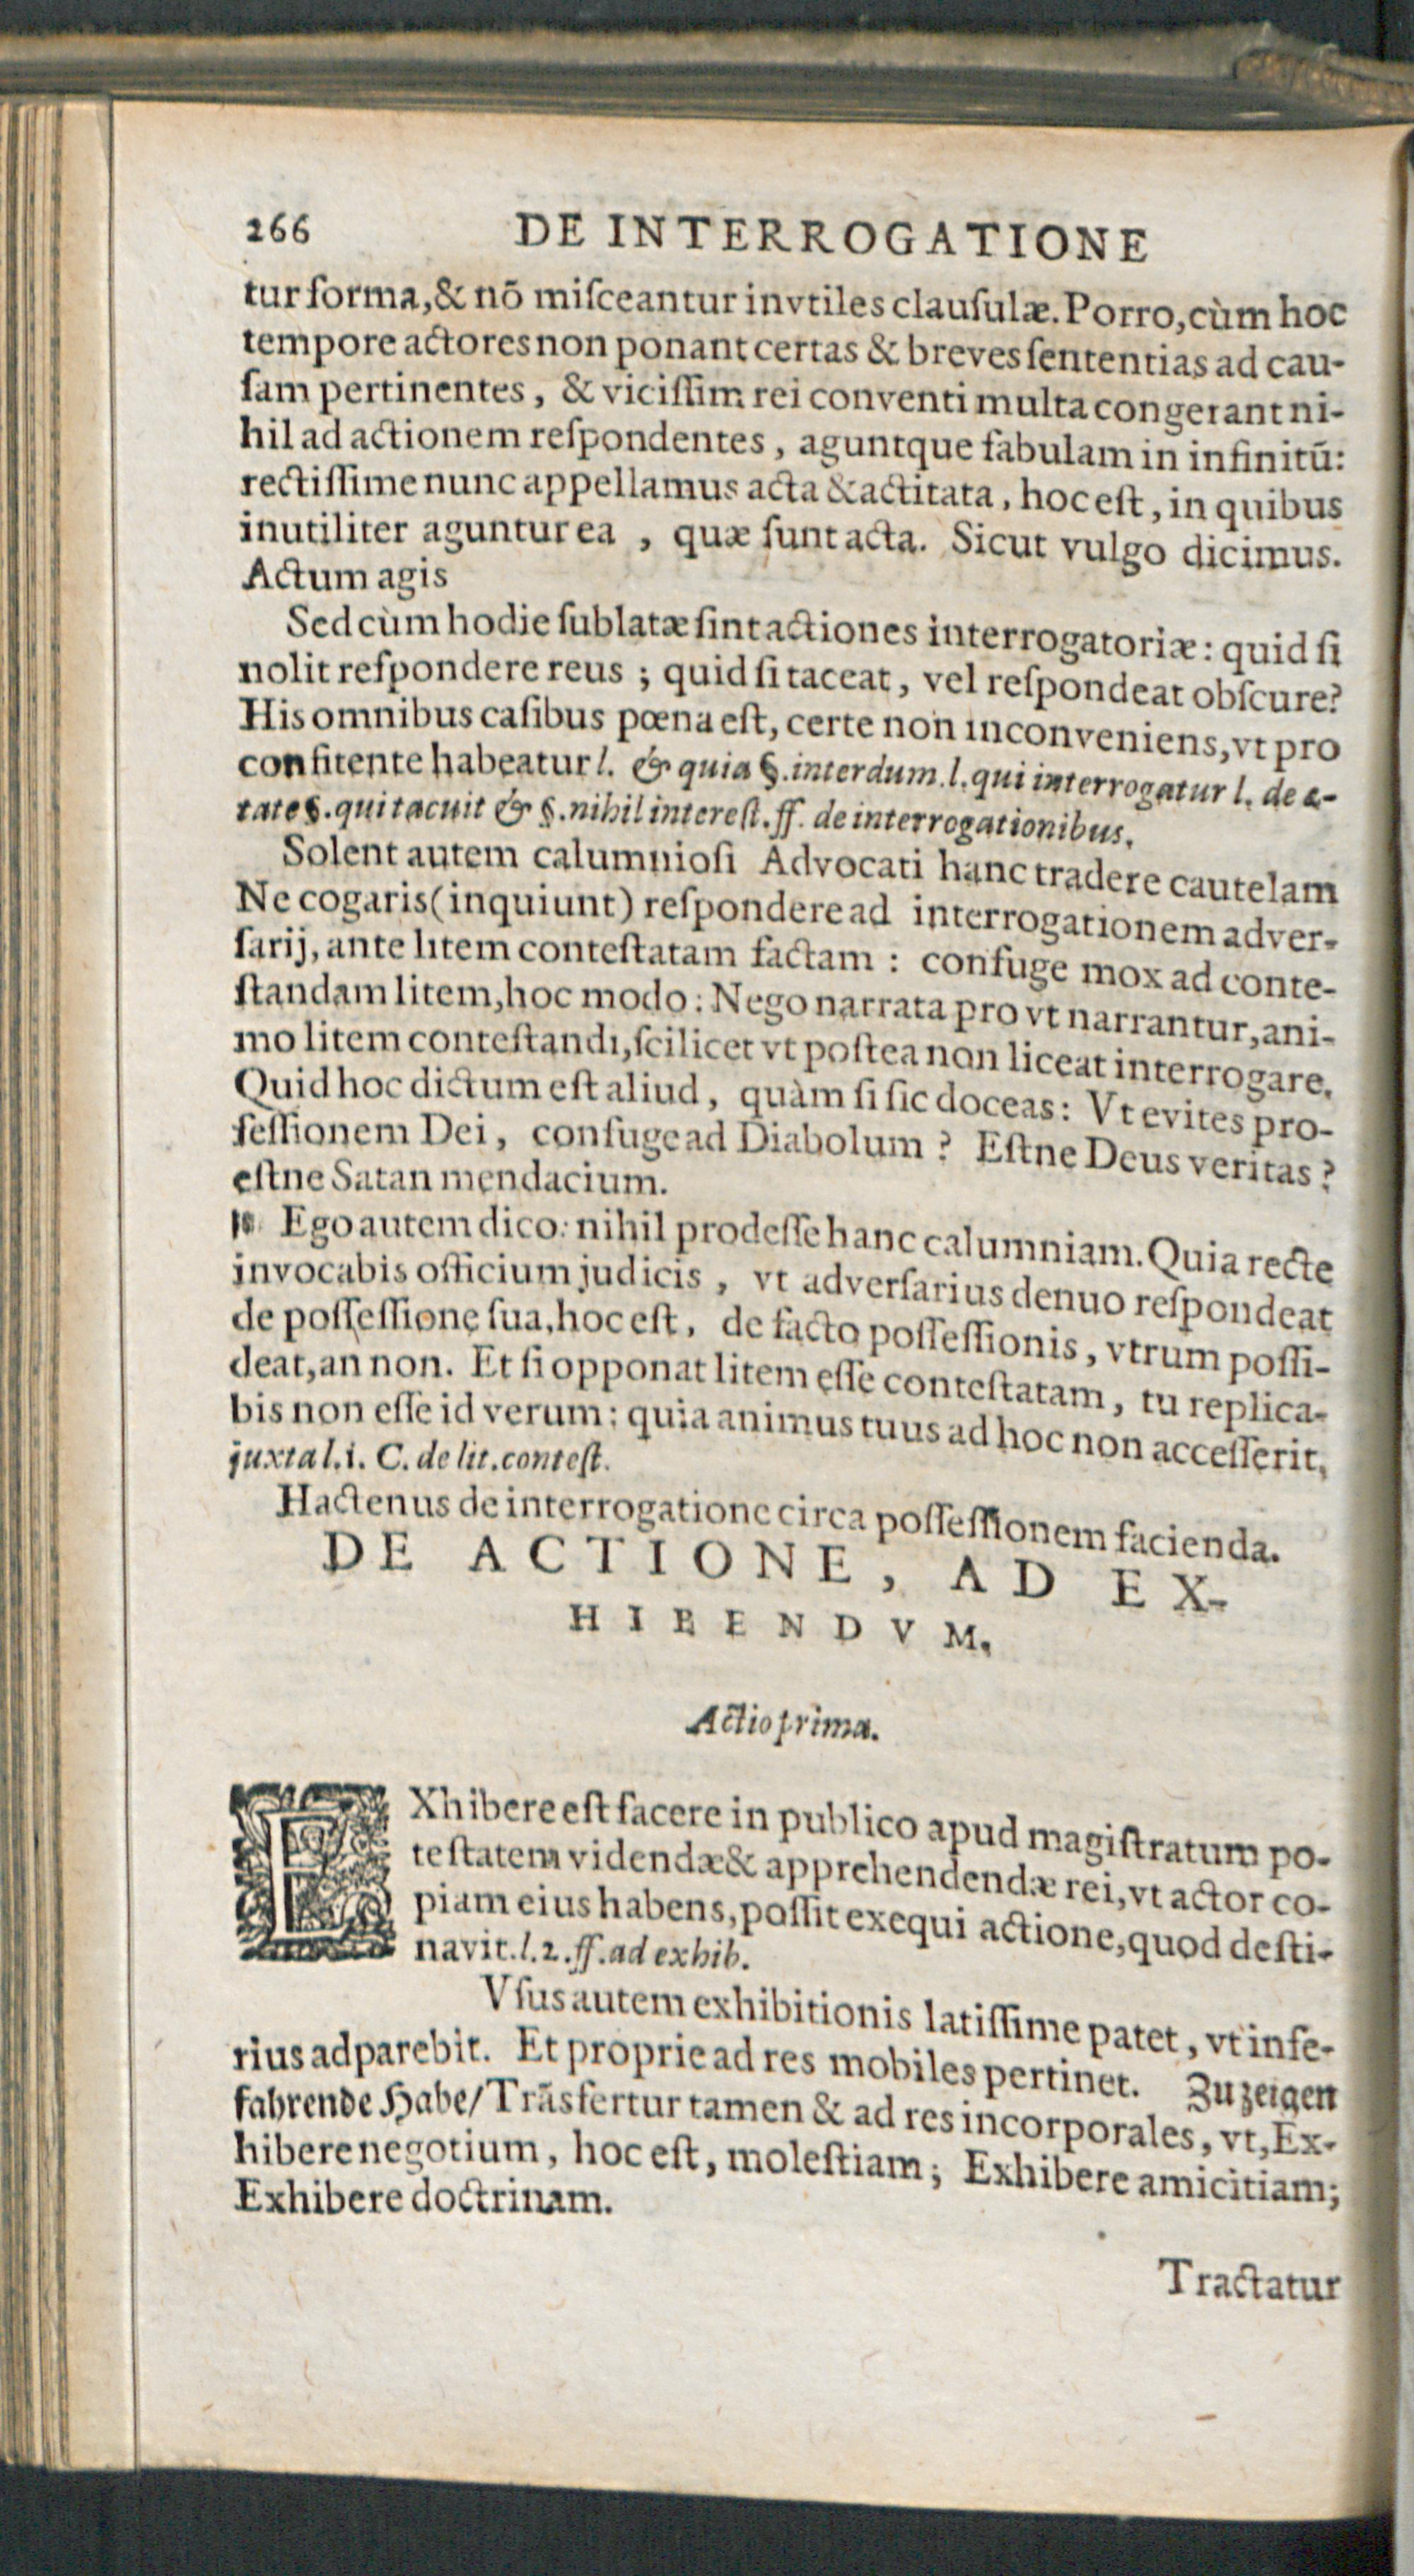 266 DE INTERROGATIONE
tur forma, & nō miſceantur invtiles clauſulæ. Porro, cùm hoc
tempore actores non ponant certas & breves ſententias ad cau-
ſam pertinentes, & viciſſim rei conventi multa congerant ni-
hil ad actionem reſpondentes, aguntque fabulam in infinitū:
rectiſſime nunc appellamus acta & actitata, hoc eſt, in quibus
inutiliter aguntur ea, quæ ſunt acta. Sicut vulgo dicimus.
Actum agis
Sed cùm hodie ſublatæ ſint actiones interrogatoriæ: quid ſi
nolit reſpondere reus; quid ſi taceat, vel reſpondeat obſcure?
His omnibus caſibus pœna eſt, certe non inconveniens, vt pro
confitente habeatur l. & quia §. interdum. l. qui interrogatur l. de æ-
tate §. qui tacuit & §. nihil intereſt. ff. de interrogationibus.
Solent autem calumnioſi Advocati hanc tradere cautelam
Ne cogaris (inquiunt) reſpondere ad interrogationem adver-
ſarij, ante litem conteſtatam factam: confuge mox ad conte-
ſtandam litem, hoc modo: Nego narrata pro vt narrantur, ani-
mo litem conteſtandi, ſcilicet vt poſtea non liceat interrogare.
Quid hoc dictum eſt aliud, quàm ſi ſic doceas: Vt evites pro-
feſſionem Dei, confuge ad Diabolum? Eſtne Deus veritas?
eſtne Satan mendacium.
Ego autem dico: nihil prodeſſe hanc calumniam. Quia recte
invocabis officium judicis, vt adverſarius denuo reſpondeat
de poſſeſſione ſua, hoc eſt, de facto poſſeſſionis, vtrum poſſi-
deat, an non. Et ſi opponat litem eſſe conteſtatam, tu replica-
bis non eſſe id verum: quia animus tuus ad hoc non acceſſerit,
juxta l. 1. C. de lit. conteſt.
Hactenus de interrogatione circa poſſeſſionem facienda.
DE ACTIONE, AD EX-
HIBENDVM.
Actio prima.
EXhibere eſt facere in publico apud magiſtratum po-
teſtatem videndæ & apprehendendæ rei, vt actor co-
piam eius habens, poſſit exequi actione, quod deſti-
navit. l. 2. ff. ad exhib.
Vſus autem exhibitionis latiſſime patet, vt infe-
rius adparebit. Et proprie ad res mobiles pertinet. Zu zeigen
fahrende Habe/ Trāsfertur tamen & ad res incorporales, vt, Ex-
hibere negotium, hoc eſt, moleſtiam; Exhibere amicitiam;
Exhibere doctrinam.
Tractatur